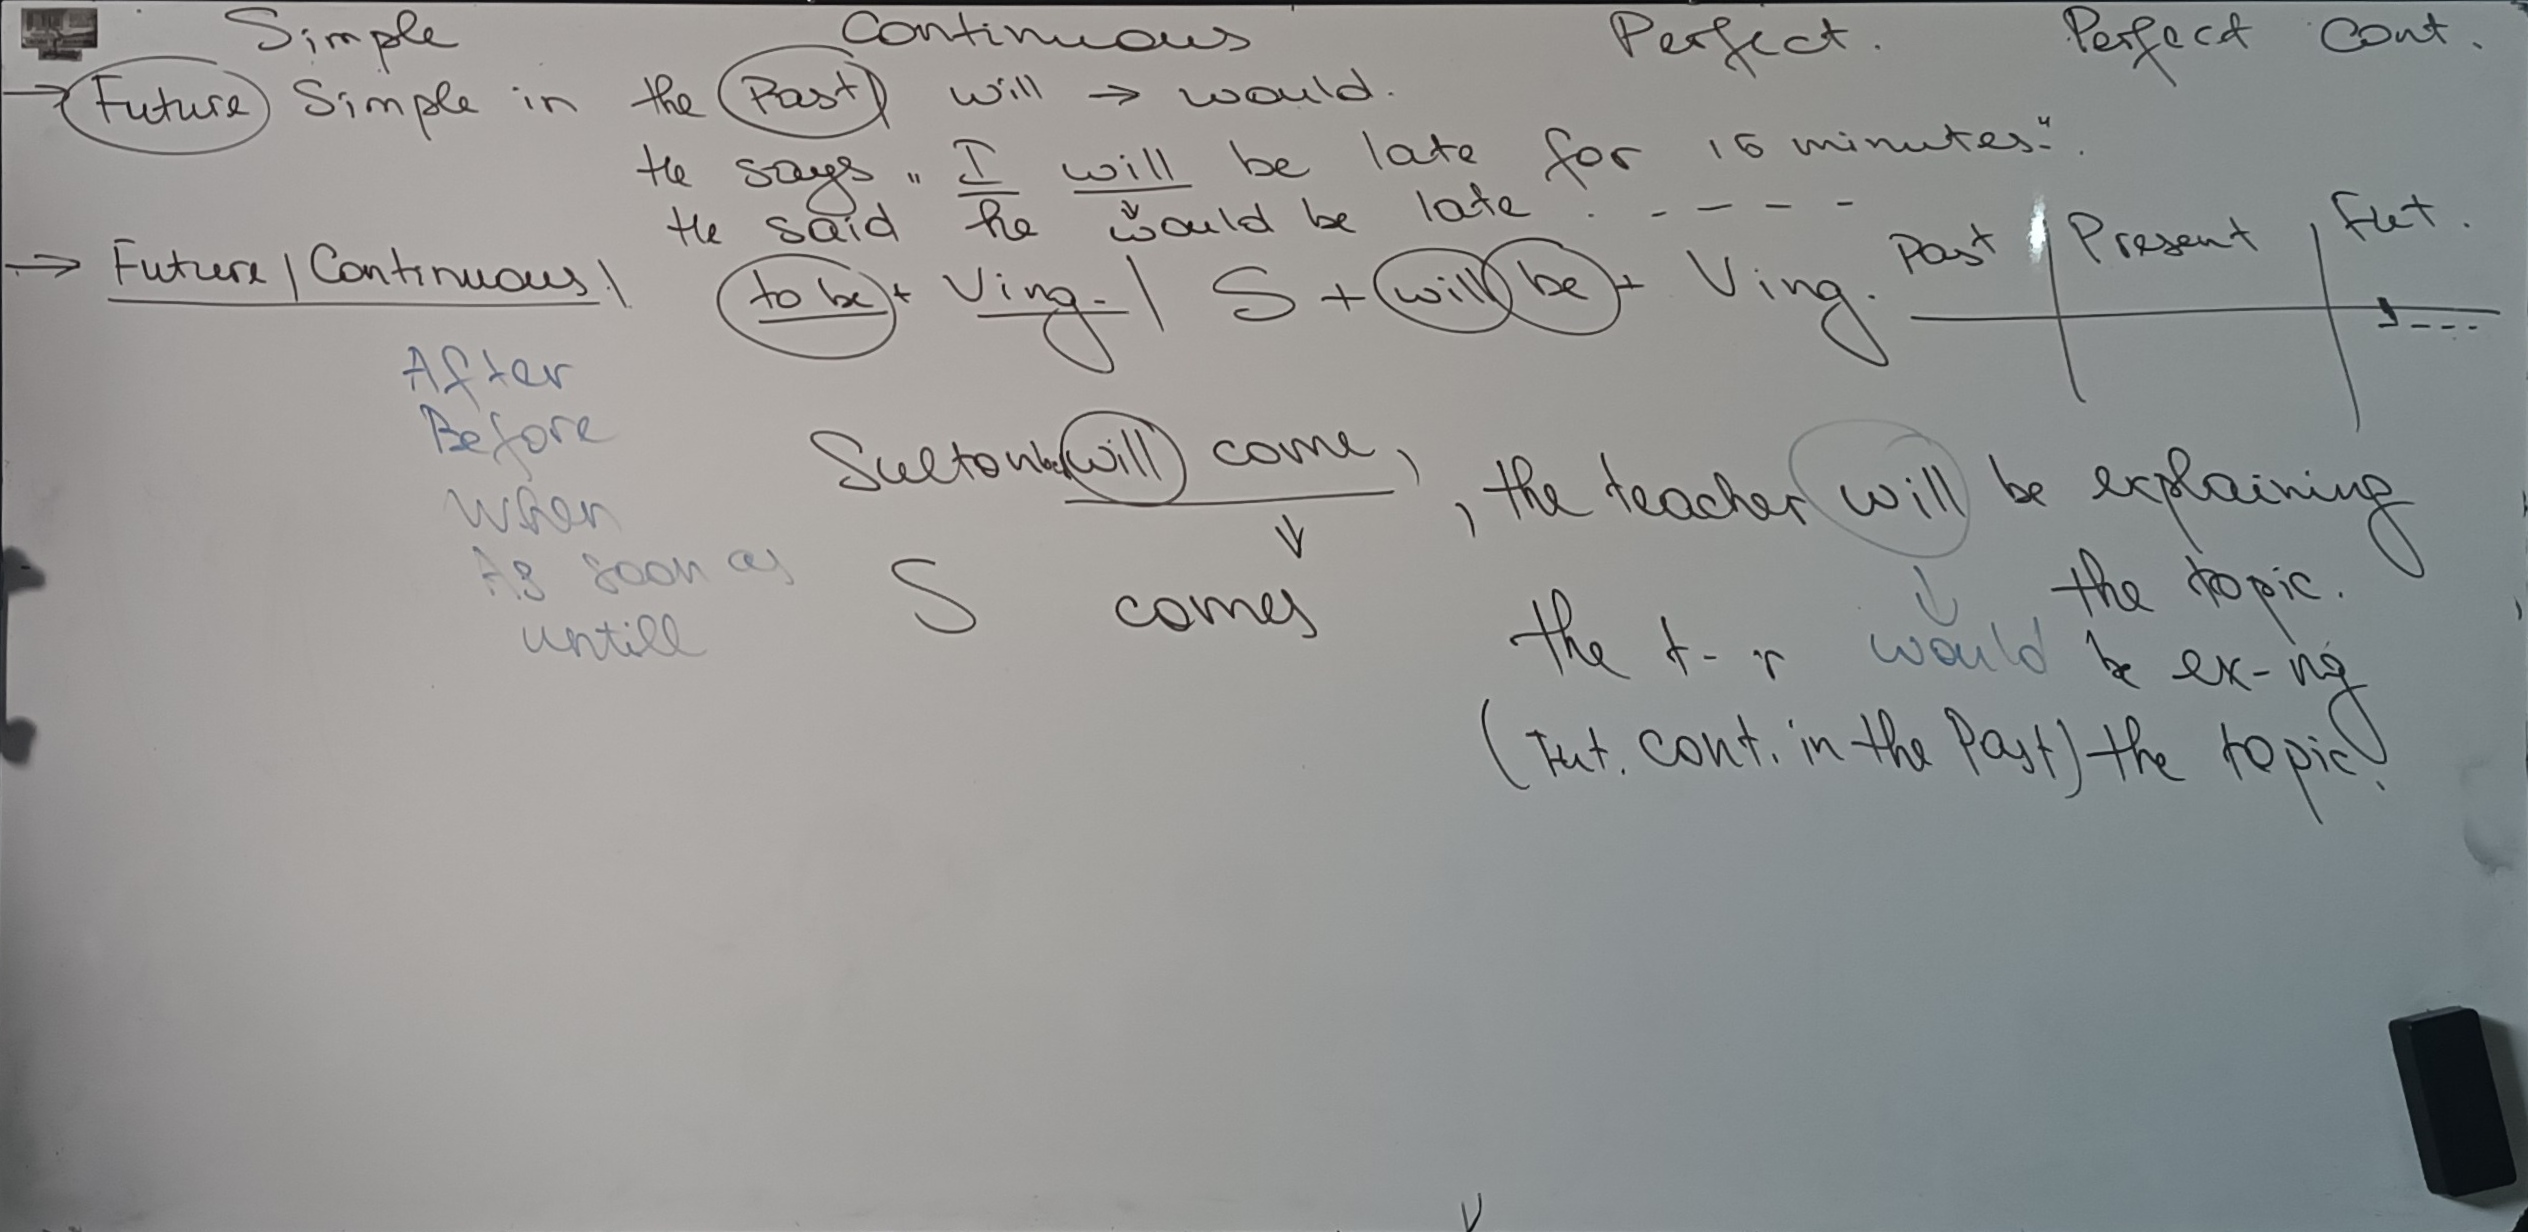 Simple Continuous Perfect. Perfect Cont.
→ Future Simple in the Past) will → would.
He says „I will be late for 15 minutes".
He said he would be late . - - - -
Past | Present | Fut.
→ Future | Continuous | to be + Ving. | S + will be + Ving.
After
Before
When
As soon as
untill
will come, , the teacher will be explaining
the topic.
S comes
the t-r would be ex-ng
(Fut. cont. in the Past) the topic.